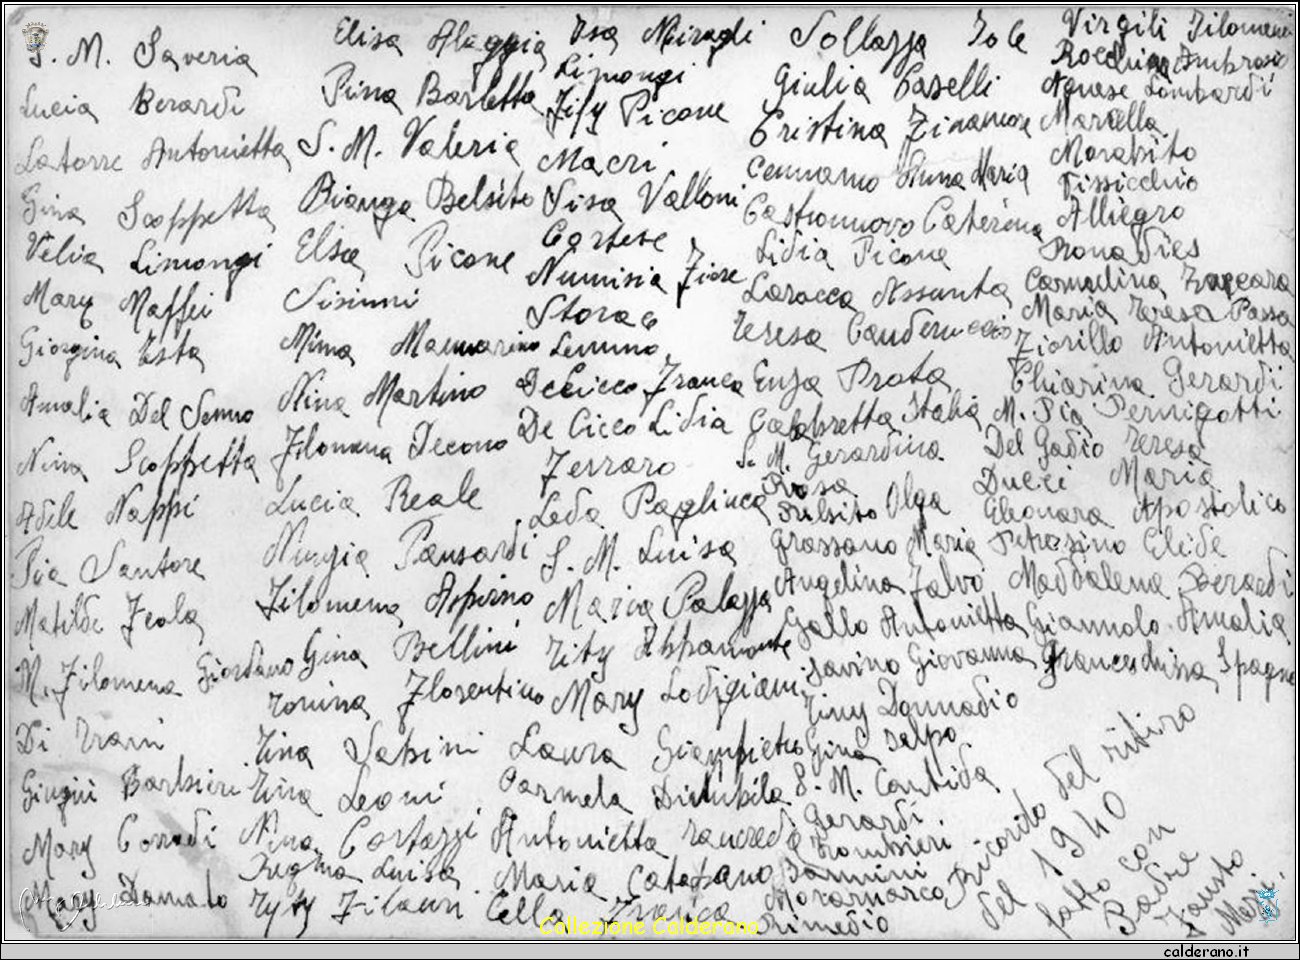 S. M. Saveria
Lucia Berardi
Latorre Antonietta
Gina Scoppetta
Velia Limongi
Mary Maffei
Giorgina Testa
Amalia Del Senno
Nina Scoppetta
Adele Nappi
Pia Santore
Matilde Feola
M. Filomena Giordano
Di Trani
Giugiù Barbieri
Mary Corradi
Mary Damato
Elisa Alaggia
Pina Barletta
S. M. Valeria
Bianga Belsito
Elsa Picone
Sisinni
Mima Mannarino
Nina Martino
Filomena Iecono
Lucia Reale
Nunzia Pansardi
Filomena Aspirno
Gina Bellini
Tonina Florentino
Tina Sabini
Tina Leoni
Nina Cortazzi
Reghina Luisa
Tyty Filauri
Isa Niragli
Limongi
Fify Picone
Macri
Sisa Valloni
Cortese
Numisia Fiore
Storac
Lemma
De Cicco Franca
De Cicco Lidia
Ferraro
Leda Pagliuca
S. M. Luisa
Maria Palazza
Tity Abbamonte
Mary Lodigiani
Laura Giampietro
Carmela Dilubila
Antonietta Tancredi
Maria Catapano
Cella Franca
Sollazza Iole
Giulia Caselli
Cristina Zinamore
Cennamo Anna Maria
Castronuovo Caterina
Lidia Picone
Larocca Assunta
Teresa Cauderuccio
Enza Prota
Calabretta Italia
S. M. Gerardina
Rosa
Belsito Olga
Grassano Maria
Angelina Falvo
Gallo Antonietta
Savino Giovanna
Tiny Donnadio
Gina Salpo
S. M. Cantida
Gerardi
Trombieri
Bonnini
Moramarco
Rimedio
Virgili Filomena
Rocchina Ambrosio
Agnese Lombardi
Mariella
Morabito
Fissicchio
Alliegro
Ronadies
Carmelina Zaccara
Maria Teresa Passa
Fiorillo Antonietta
Chiarina Gerardi
M. Pia Pernigotti
Del Gadio Teresa
Ducci Maria
Eleonara Apostolico
Petrasino Elide
Maddalena Berardi
Giannolo Amalia
Franceschina Spagna
Ricordo del ritiro
del 1940
fatto con
Padre
Fausto
Mosi.
Collezione Calderano
calderano.it